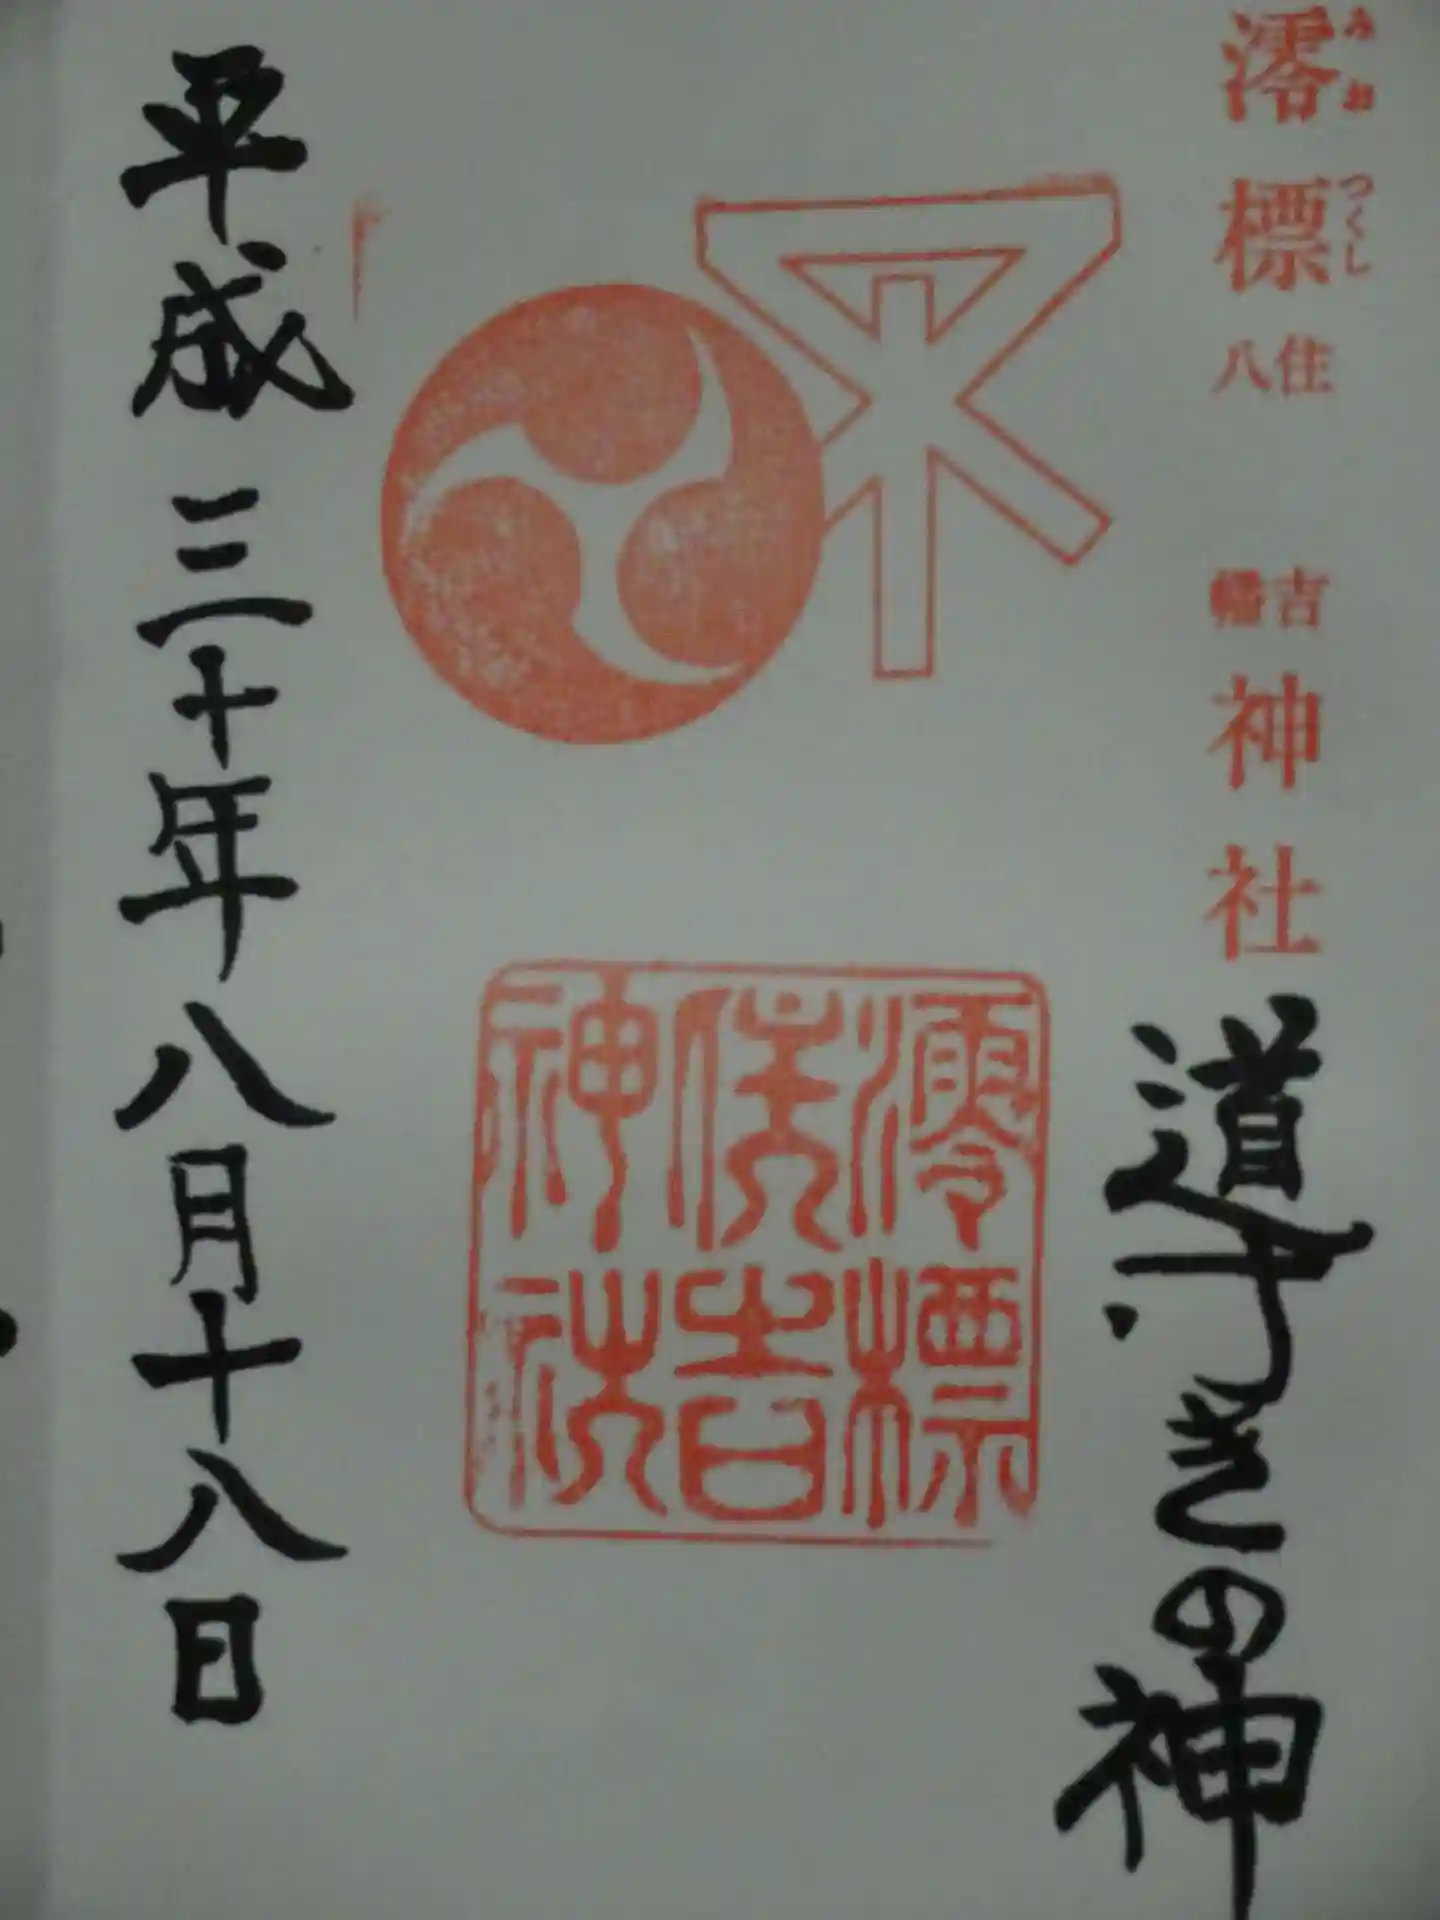 澪標 住吉 八幡 神社
みおつくし
道守ぎの神
澪標
住吉
神社
平成三十年八月十八日